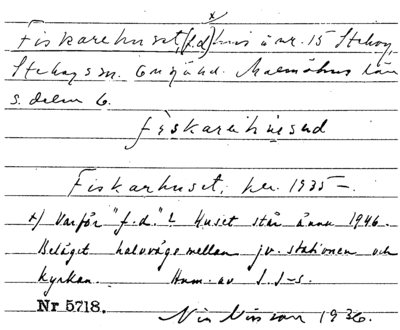 x
Fiskarehuset, (f.d.) hus å nr. 15 Stehag,
Stehags sn. Onsjö hd. Malmöhus län
s. delen 6.
fiskarehused
Fiskarhuset, ber. 1935 –.
x) Varför "f.d."? Huset står ännu 1946.
Beläget halvvägs mellan jv. stationen och
kyrkan. Hum. av I. I-s.
Nr 5718.
Nils Nilsson 1936.